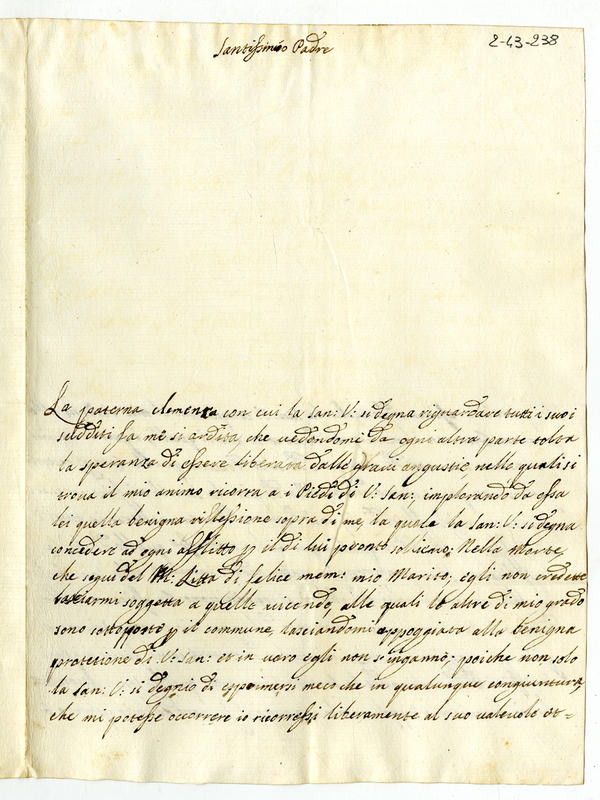 Santissimo Padre
2-43-238
La paterna clemenza con cui la San: V: si degna riguardare tutti i suoi
sudditi fa me si ardita, che vedendomi da ogni altra parte tolta
la speranza di essere liberata dalle gravi angustie nelle quali si
trova il mio animo ricorra a i Piedi di V: San:, implorando da essa
lei quella benigna riflessione sopra di me, la quale la San: V: si degna
concedere ad ogni afflitto p il di lui pronto sollievo. Nella Morte,
che seguì del M: Litta di felice mem: mio Marito, egli non credette
lasciarmi soggetta a quelle vicende, alle quali le altre di mio grado
sono sottoposte p il commune, lasciandomi appoggiata alla benigna
protetione di V: San: et in vero egli non s'ingannò; poiche non solo
la San: V: si degnò di esprimersi meco che in qualunque congiuntura,
che mi potesse occorrere io ricorressi liberamente al suo valevole et=